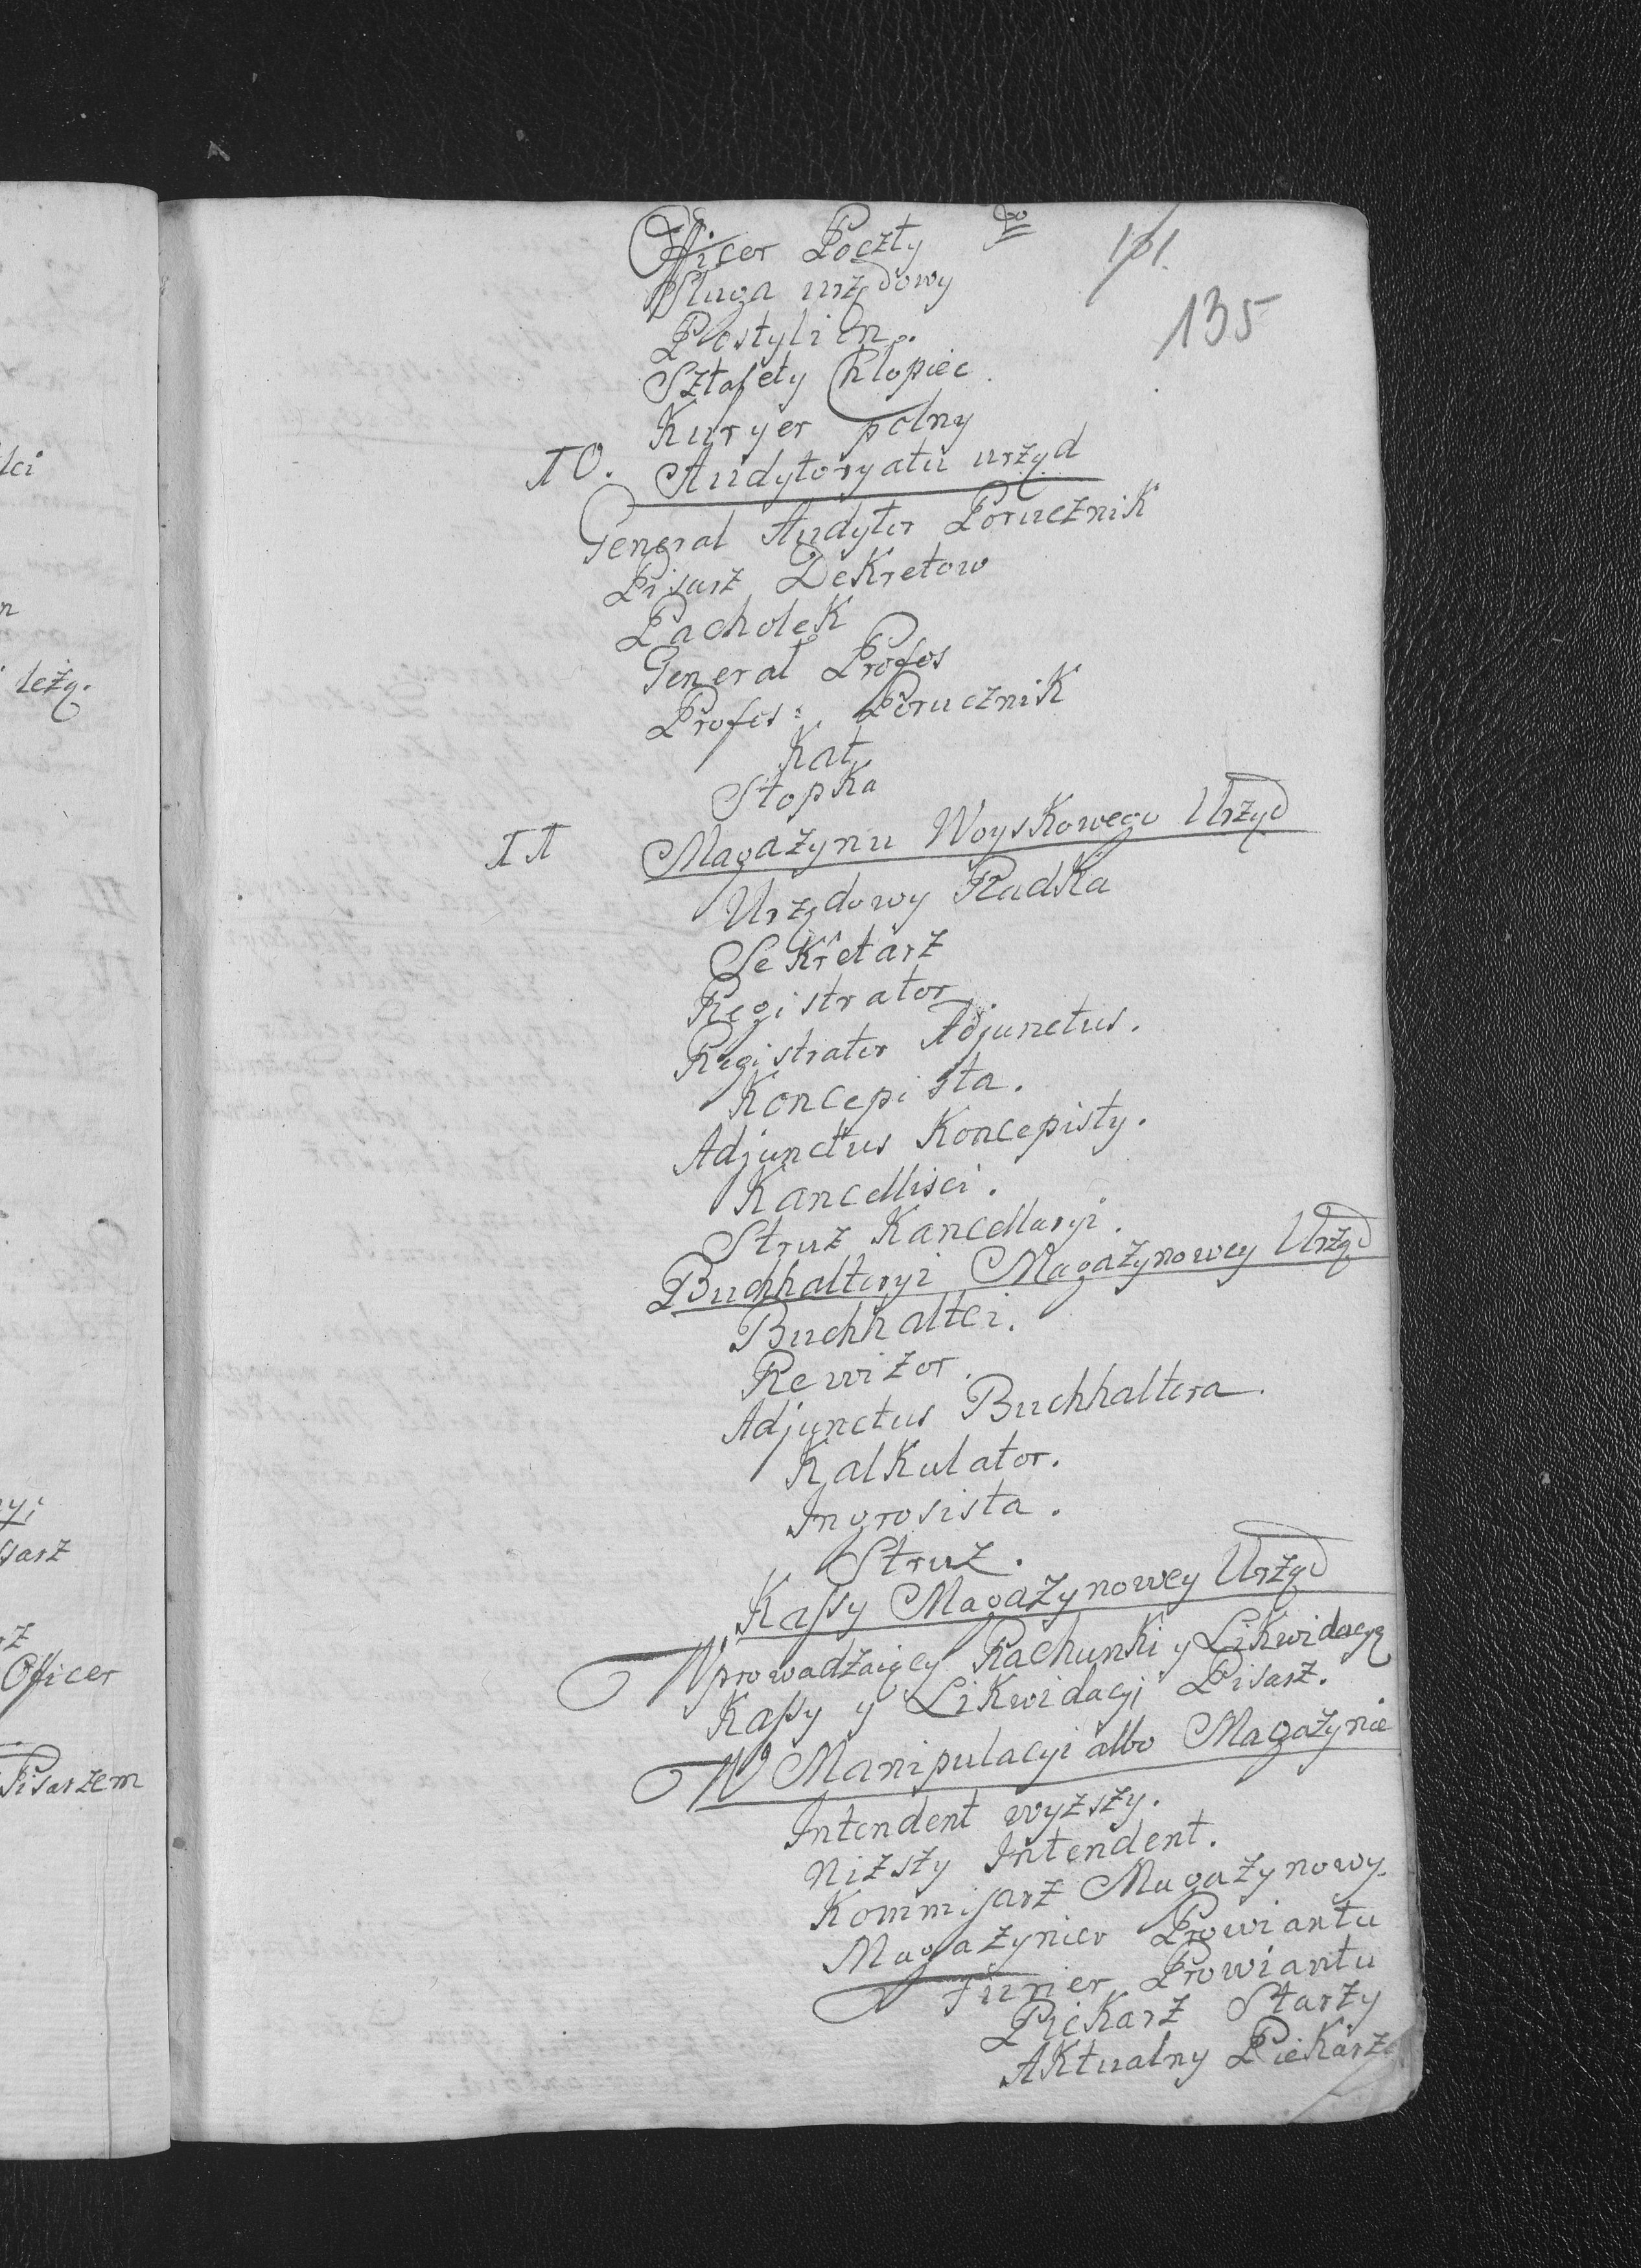 ści
n
leżą.
yi
sarz
rz
Officer
Pisarzem
Officer Poczty
101.
135
Sługa urzędowy
Postylion.
Sztafety Chłopiec.
Kuryer polny
10. Audytoryatu urząd
General Audytor Porucznik
Pisarz Dekretow
Pachołek
General Profos
Profos: Porucznik
Kat
Stopka
11 Magazynu Woyskowego Urząd
Urzędowy Radka
Sekretarz
Registrator
Registrator Adjunctus.
Koncepista.
Adjunctus Koncepisty.
Kancellisci.
Struz Kancellaryi.
Buchhalteryi Magazynowey Urząd
Buchhalter.
Rewizor.
Adjunctus Buchhaltera.
Kalkulator.
Ingrosista.
Struz.
Kassy Magazynowey Urząd
Wprowadzaięcy Rachunki y Likwidacyę
Kassy y Likwidacyi Pisarz.
W Manipulacyi albo Magazynie
Intendent wyzszy.
Nizszy Intendent.
Kommisarz Magazynowy.
Magazynier Prowiantu
Furier Prowiantu
Piekarz Starzy
Aktualny Piekarz